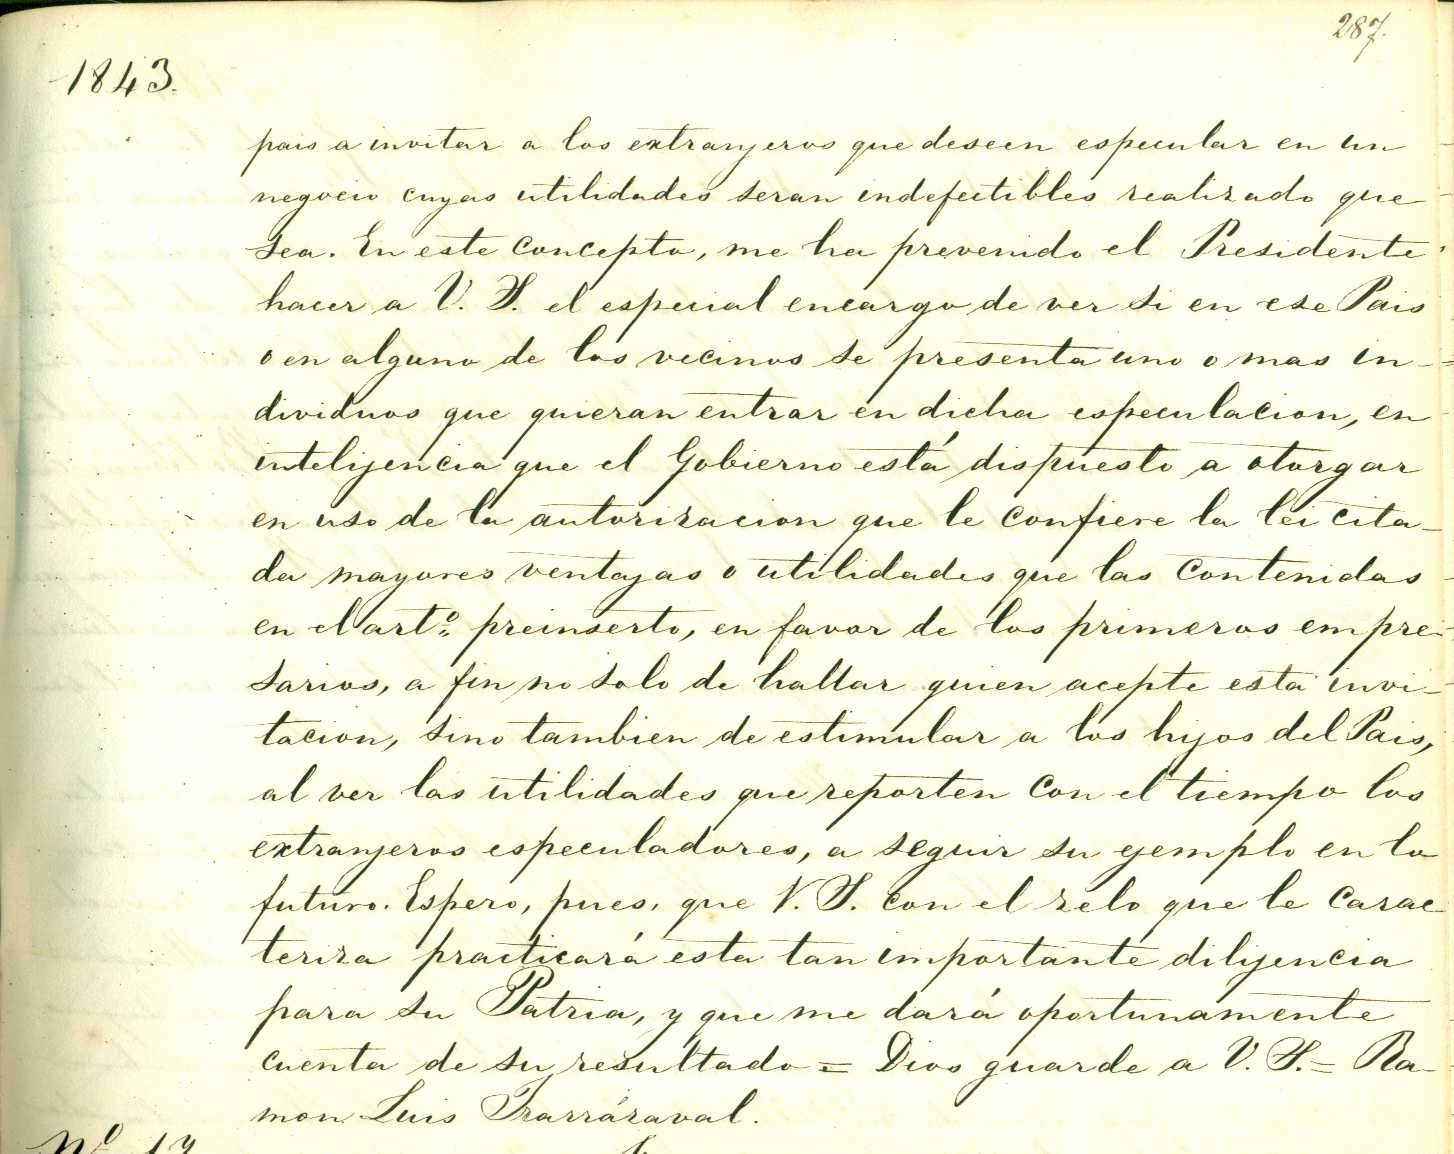 287.
1843.
pais a invitar a los extranjeros que deseen especular en un
negocio cuyas utilidades seran indefectibles realizado que
sea. En este concepto, me ha prevenido el Presidente
hacer a V. S. el especial encargo de ver si en ese Pais
o en alguno de los vecinos se presenta uno o mas in-
dividuos que quieran entrar en dicha especulacion, en
intelijencia que el Gobierno está dispuesto a otorgar
en uso de la autorizacion que le confiere la lei cita-
da mayores ventajas o utilidades que las contenidas
en el artº preinserto, en favor de los primeros empre-
sarios, a fin no solo de hallar quien acepte esta invi-
tacion, sino tambien de estimular a los hijos del Pais,
al ver las utilidades que reporten con el tiempo los
extranjeros especuladores, a seguir su ejemplo en lo
futuro. Espero, pues, que V. S. con el zelo que le carac
teriza practicará esta tan importante dilijencia
para su Patria, y que me dará oportunamente
cuenta de su resultado = Dios guarde a V. S. = Ra-
mon Luis Irarrázaval.
Nº 17